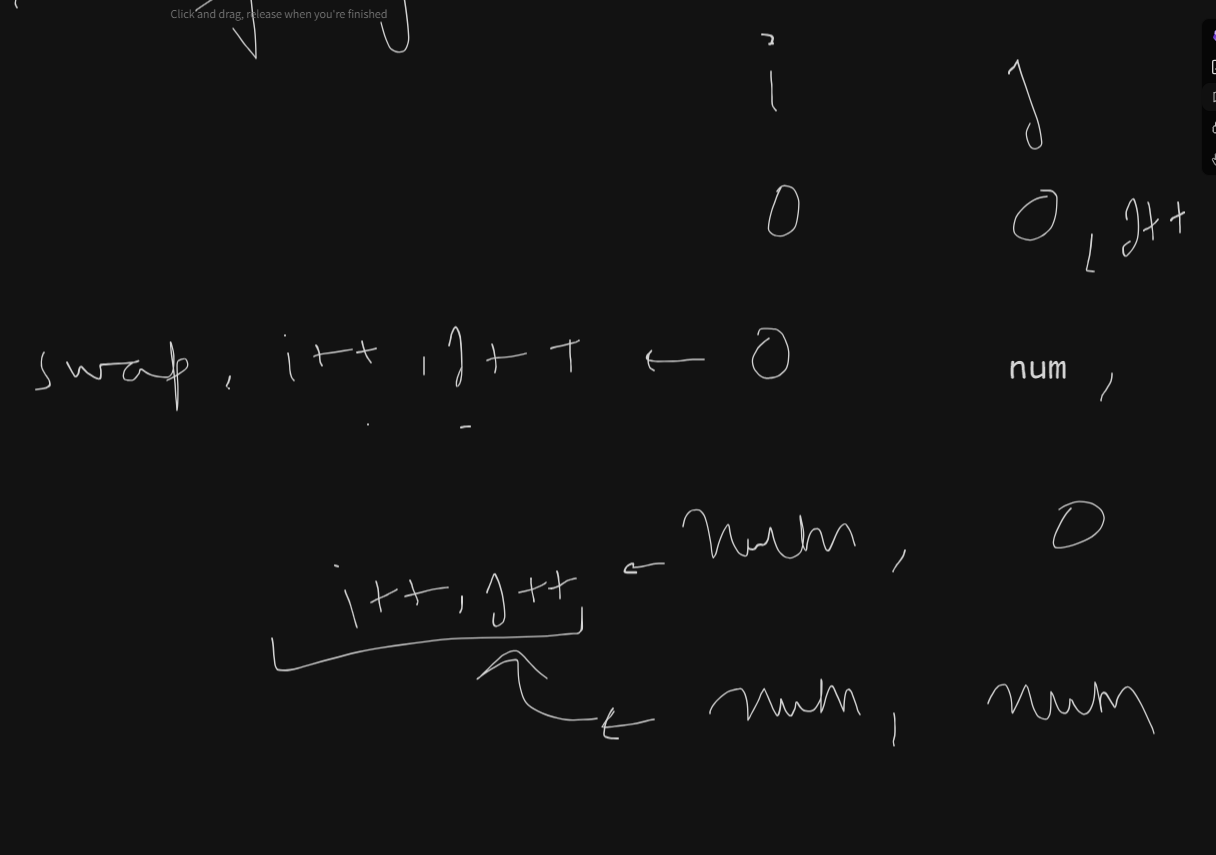 Click and drag, release when you're finished
i j
0 0, j++
swap, i++, j++ ← 0 num,
i++, j++ ← num, 0
← num, num